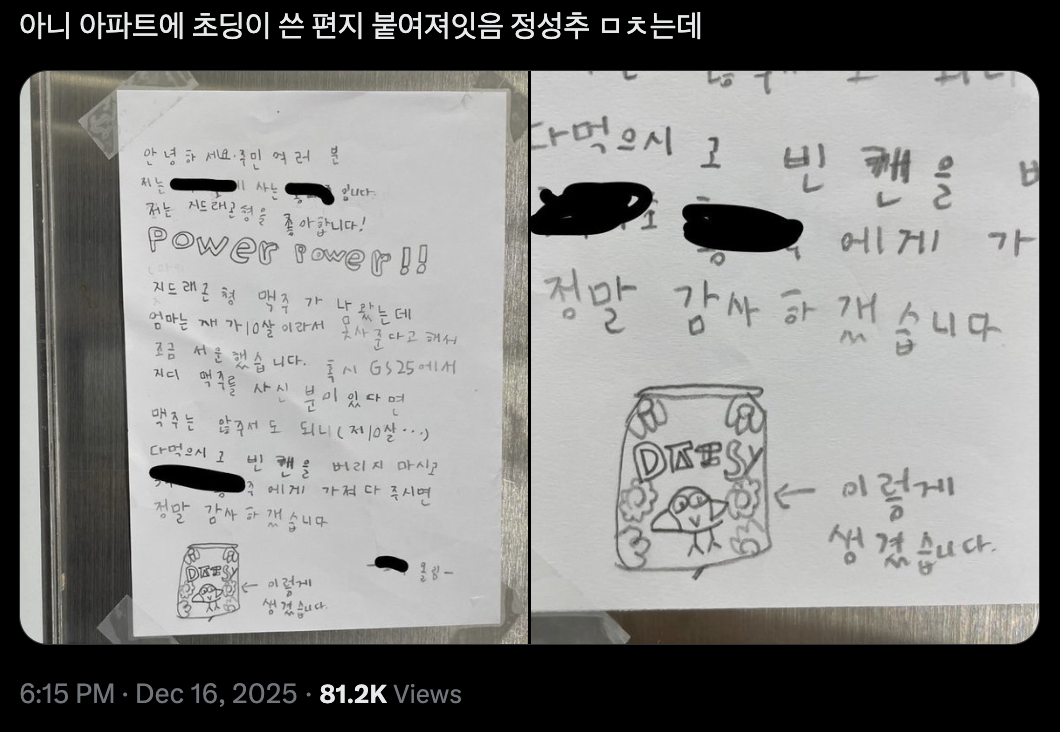 아니 아파트에 초딩이 쓴 편지 붙여져잇음 정성추 ㅁㅊ는데
안녕하세요. 주민 여러분
저는 사는 입니다.
저는 지드래곤형을 좋아합니다!
POWER POWER!!
지드래곤 형 맥주가 나왔는데
엄마는 제가 10살이라서 못사준다고 해서
조금 서운했습니다. 혹시 GS25에서
지디 맥주를 사신 분이 있다면
맥주는 않주서도 되니 (저10살...)
다먹으시고 빈 캔을 버리지 마시고
에게 가져다 주시면
정말 감사하겠습니다
울림-
DAISY
← 이렇게
생겼습니다.
다먹으시고 빈 캔을 버
에게 가
정말 감사하겠습니다
DAISY
← 이렇게
생겼습니다.
6:15 PM · Dec 16, 2025 · 81.2K Views